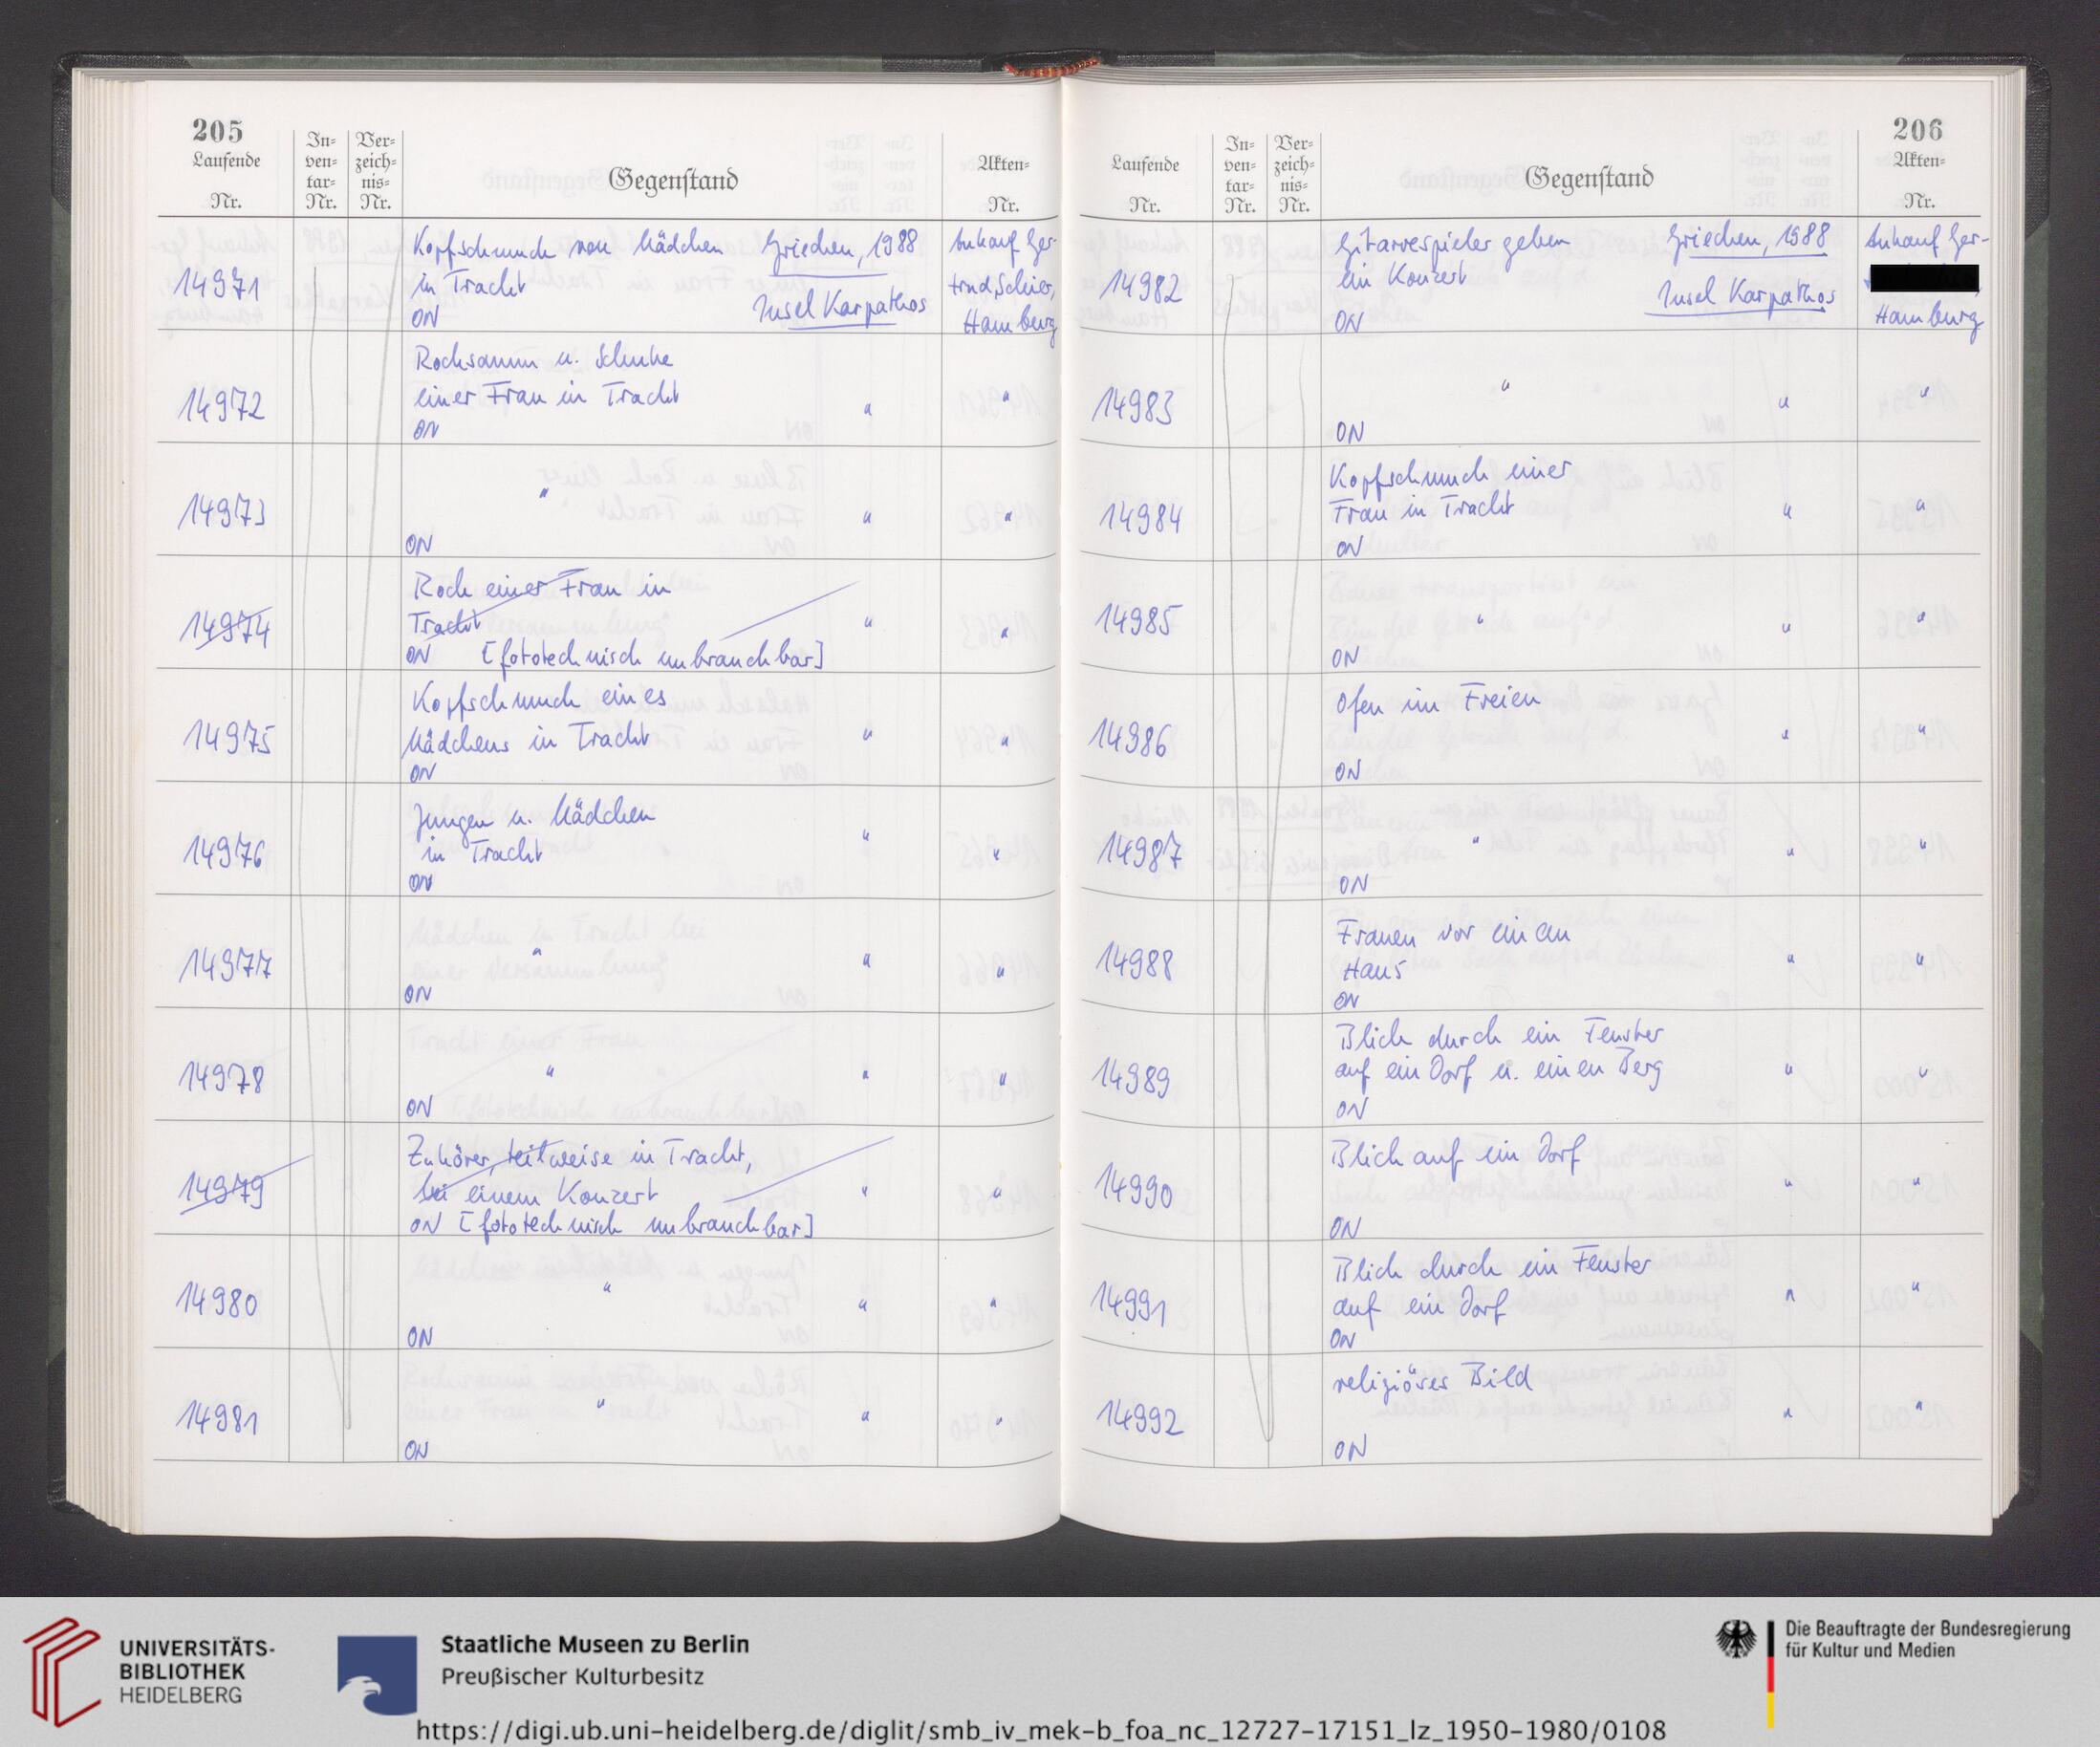 205
Laufende
Nr.
In-
ven-
tar-
Nr.
Ver-
zeich-
nis-
Nr.
Gegenstand
Akten-
Nr.
14971
Kopfschmuck von Mädchen Griechen, 1988
in Tracht
Insel Karpathos
ON
Ankauf Ger-
trud Schier,
Hamburg
14972
Rocksaum u. Schuhe
einer Frau in Tracht " "
ON
14973 " " "
ON
14974
Rock einer Frau in
Tracht " "
ON [fototechnisch unbrauchbar]
14975
Kopfschmuck eines
Mädchens in Tracht " "
ON
14976
Jungen u. Mädchen
in Tracht " "
ON
14977 " " "
ON
14978 " " "
ON
14979
Zuhörer, teilweise in Tracht,
bei einem Konzert " "
ON [fototechnisch unbrauchbar]
14980 " " "
ON
14981 " " "
ON
206
Laufende
Nr.
In-
ven-
tar-
Nr.
Ver-
zeich-
nis-
Nr.
Gegenstand
Akten-
Nr.
14982
Gitarrespieler geben Griechen, 1988
ein Konzert
Insel Karpathos
ON
Ankauf Ger-
Hamburg
14983 " " "
ON
14984
Kopfschmuck einer
Frau in Tracht " "
ON
14985 " " "
ON
14986
Ofen im Freien " "
ON
14987 " " "
ON
14988
Frauen vor einem
Haus " "
ON
14989
Blick durch ein Fenster
auf ein Dorf u. einen Berg " "
ON
14990
Blick auf ein Dorf " "
ON
14991
Blick durch ein Fenster
auf ein Dorf " "
ON
14992
religiöses Bild " "
ON
UNIVERSITÄTS-
BIBLIOTHEK
HEIDELBERG
Staatliche Museen zu Berlin
Preußischer Kulturbesitz
Die Beauftragte der Bundesregierung
für Kultur und Medien
https://digi.ub.uni-heidelberg.de/diglit/smb_iv_mek-b_foa_nc_12727-17151_lz_1950-1980/0108